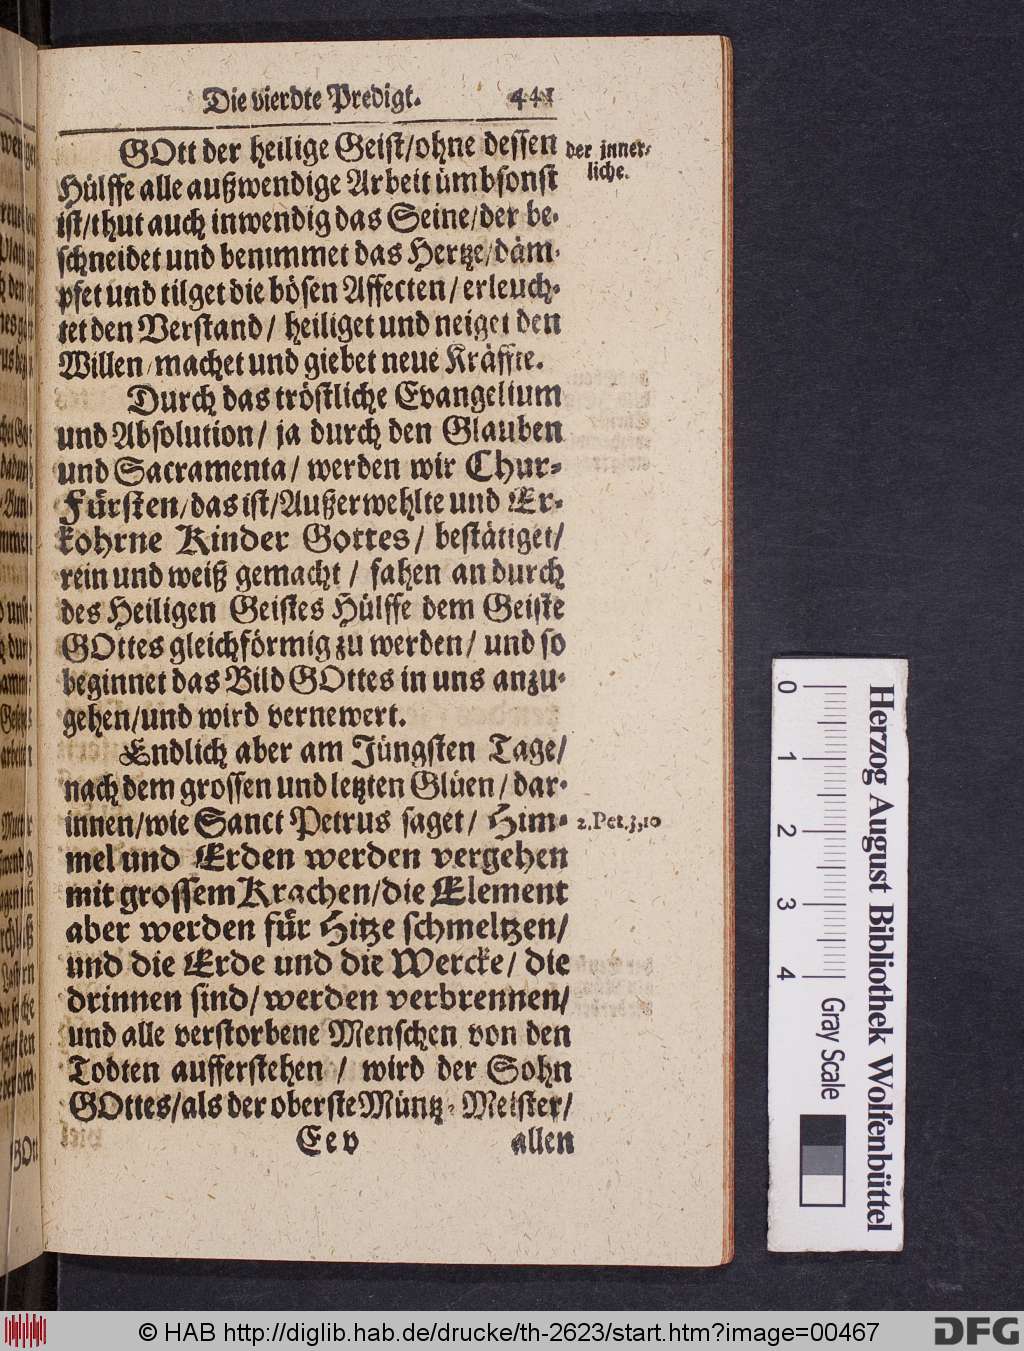 Die vierdte Predigt. 441
GOtt der heilige Geist/ohne dessen
Hülffe alle außwendige Arbeit ümbsonst
ist/thut auch inwendig das Seine/der be-
schneidet und benimmet das Hertze/däm-
pfet und tilget die bösen Affecten/erleuch-
tet den Verstand/ heiliget und neiget den
Willen/machet und giebet neue Kräffte.
der inner-
liche.
Durch das tröstliche Evangelium
und Absolution/ ja durch den Glauben
und Sacramenta/ werden wir Chur-
Fürsten/das ist/Außerwehlte und Er-
kohrne Kinder Gottes/ bestätiget/
rein und weiß gemacht/ fahen an durch
des Heiligen Geistes Hülffe dem Geiste
GOttes gleichförmig zu werden/ und so
beginnet das Bild GOttes in uns anzu-
gehen/und wird vernewert.
Endlich aber am Jüngsten Tage/
nach dem grossen und letzten Glüen/ dar-
innen/wie Sanct Petrus saget/ Him-
2. Pet. 3, 10
mel und Erden werden vergehen
mit grossem Krachen/die Element
aber werden für Hitze schmeltzen/
und die Erde und die Wercke/ die
drinnen sind/werden verbrennen/
und alle verstorbene Menschen von den
Todten aufferstehen/ wird der Sohn
GOttes/als der oberste Müntz-Meister/
Ee v allen
0 1 2 3 4
Gray Scale
Herzog August Bibliothek Wolfenbüttel
© HAB http://diglib.hab.de/drucke/th-2623/start.htm?image=00467
DFG